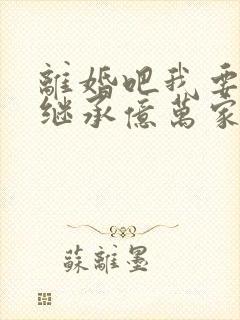 離婚吧我要
继承億萬家
蘇離墨